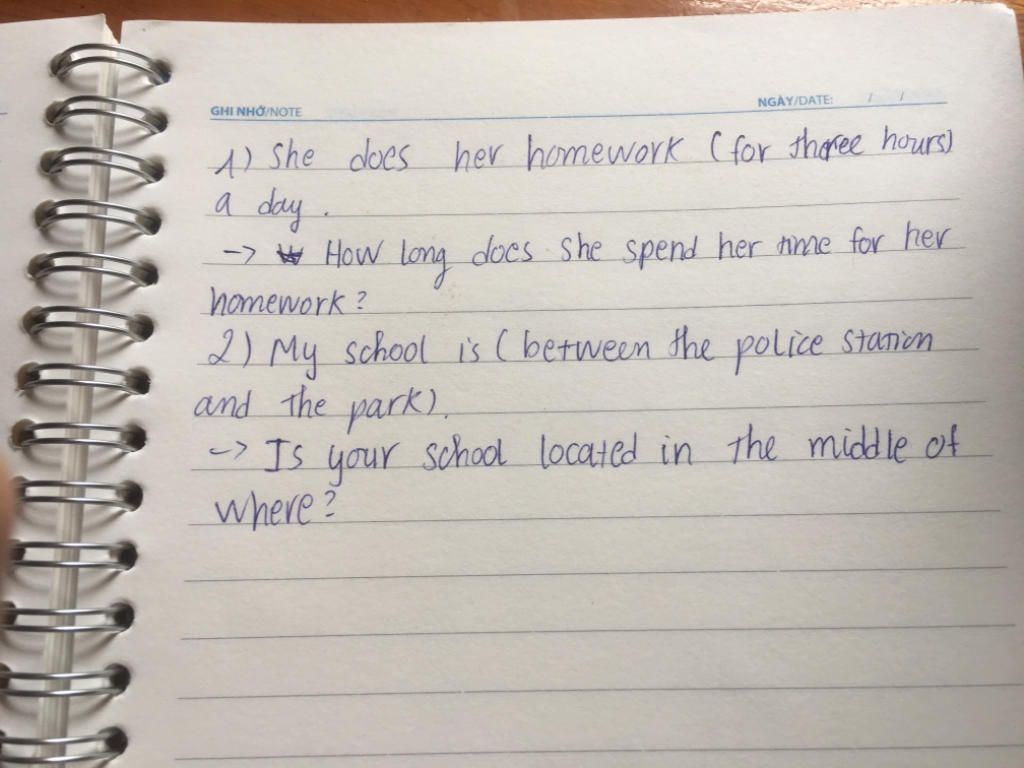 GHI NHỚ/NOTE
NGÀY/DATE: / /
1) She does her homework (for three hours)
a day.
-> How long does she spend her time for her
homework?
2) My school is (between the police station
and the park).
-> Is your school located in the middle of
where?